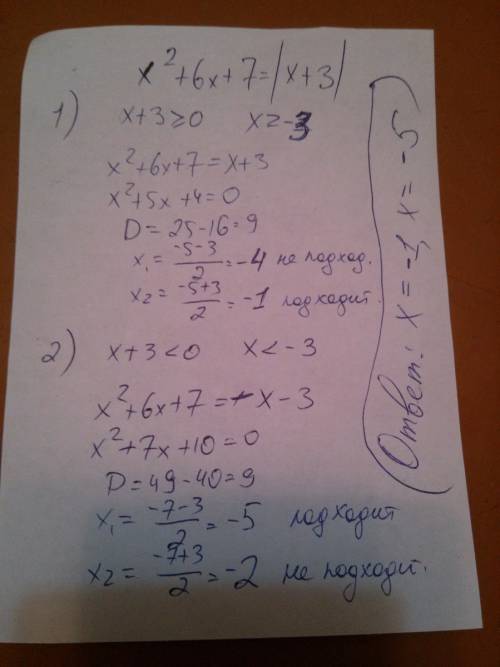 x²+6x+7=|x+3|
1) x+3≥0 x≥-3
x²+6x+7=x+3
x²+5x+4=0
D=25-16=9
x₁=(-5-3)/2=-4 не подход.
x₂=(-5+3)/2=-1 подходит.
2) x+3<0 x<-3
x²+6x+7=-x-3
x²+7x+10=0
D=49-40=9
x₁=(-7-3)/2=-5 подходит
x₂=(-7+3)/2=-2 не подходит.
Ответ: x=-1, x=-5